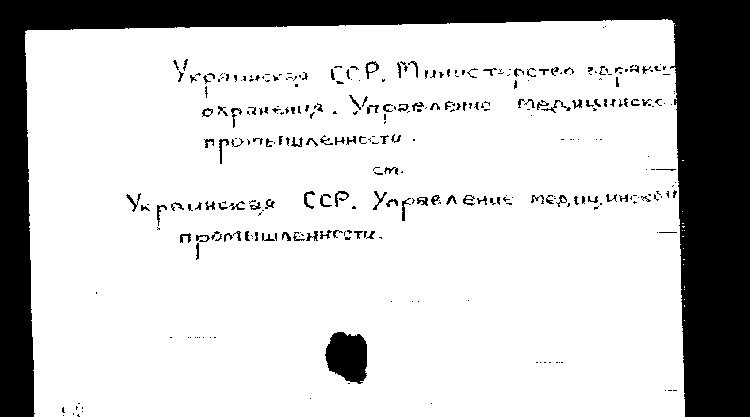 Украинская ССР. Министерство здраво-
охранения. Управление медицинской
промышленности.
см.
Украинская ССР. Управление медицинской
промышленности.